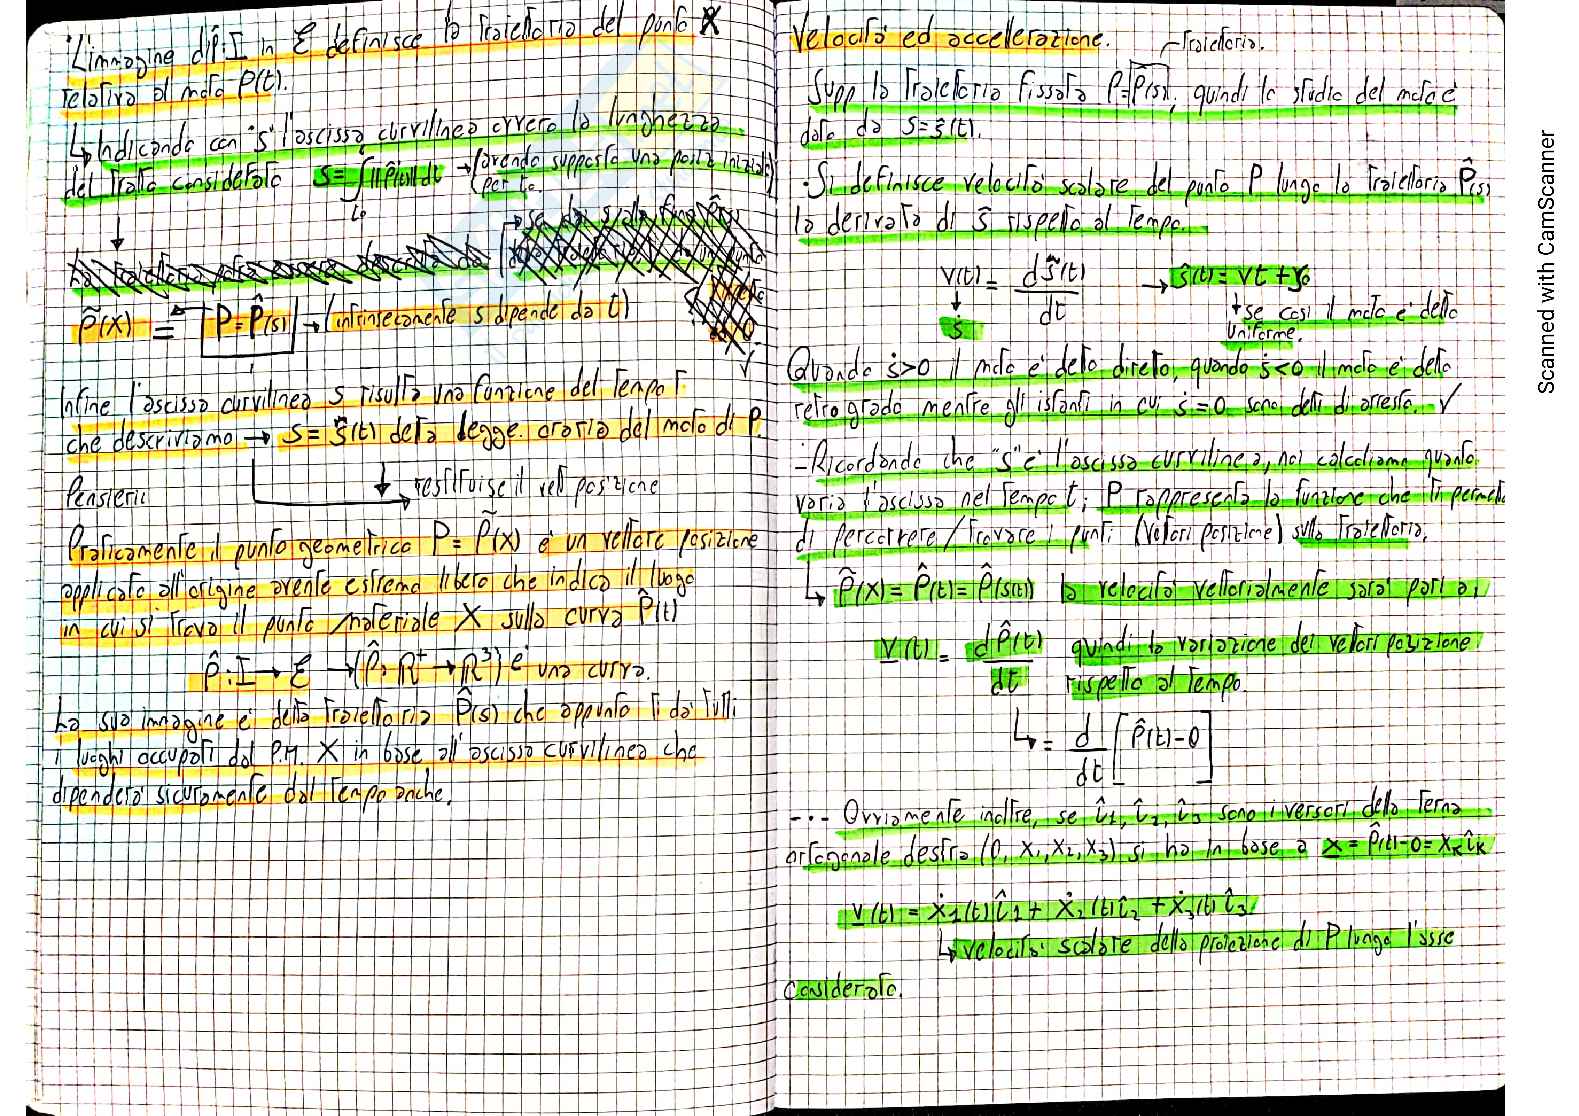 L'immagine di P̂: I in ℰ definisce la traiettoria del punto X
relativa al moto P(t).
↳ Indicando con "s" l'ascissa curvilinea ovvero la lunghezza
del tratto considerato s = ∫ ||Ṗ(t)|| dt → (avendo supposto una posiz iniziale
t₀ per t₀
P̃(X) = P = P̂(s) → (intrinsecamente s dipende da t)
Infine l'ascissa curvilinea s risulta una funzione del tempo t
che descriviamo → s = ŝ(t) detta legge oraria del moto di P.
Pensieri: restituisce il vett posizione
Praticamente il punto geometrico P = P̃(X) è un vettore posizione
applicato all'origine avente estremo libero che indica il luogo
in cui si trova il punto materiale X sulla curva P̂(t)
P̂: I → ℰ → (P̂: R⁺ → R³) è una curva.
La sua immagine è detta traiettoria P̂(s) che appunto ti dà tutti
i luoghi occupati dal P.M. X in base all'ascissa curvilinea che
dipenderà sicuramente dal tempo anche.
Velocità ed accelerazione.
Traiettoria.
Supp la traiettoria fissata P = P̂(s), quindi lo studio del moto è
dato da s = ŝ(t).
·Si definisce velocità scalare del punto P lungo la traiettoria P̂(s)
la derivata di ŝ rispetto al tempo.
v(t) = dŝ(t) → ŝ(t) = vt + s₀
dt
ṡ
se così il moto è detto
uniforme.
Quando ṡ>0 il moto è detto diretto, quando ṡ<0 il moto è detto
retrogrado mentre gli istanti in cui ṡ=0 sono detti di arresto. √
-Ricordando che "s" è l'ascissa curvilinea, noi calcoliamo quanto
varia l'ascissa nel tempo t, P rappresenta la funzione che ti permette
di percorrere/trovare i punti (vettori posizione) sulla traiettoria.
↳ P̃(X) = P̂(t) = P̂(s(t)) la velocità vettorialmente sarà pari a,
v(t) = dP̂(t) quindi la variazione dei vettori posizione
dt rispetto al tempo.
↳ = d [P̂(t)-O]
dt
--- Ovviamente inoltre, se î₁, î₂, î₃ sono i versori della terna
ortogonale destra (O, X₁, X₂, X₃) si ha in base a x = P̂(t)-O = Xₖ îₖ
v(t) = Ẋ₁(t) î₁ + Ẋ₂(t) î₂ + Ẋ₃(t) î₃
↳ velocità scalare della proiezione di P lungo l'asse
considerato.
Scanned with CamScanner